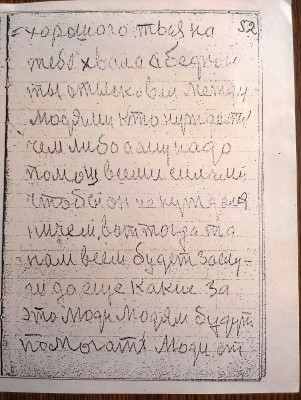 52
хорошого тья на
тебя хвала а бедного
ты отысковай между
людями кто нуждаеть
чем либо ему надо
помощ всеми силами
чтобы он не нуждался
ничем вот тогда та
нам всем будет
да еще какие за
это люди людям будут
помогать люди от